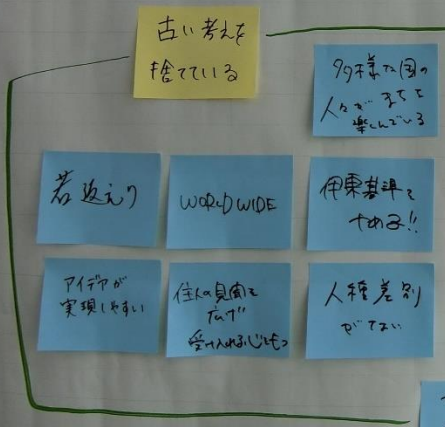 古い考えを
捨てている
多様な国の
人々がまちを
楽しんでいる
若返り
WORLDWIDE
伊東基準を
やめる!!
アイデアが
実現しやすい
住人の見聞を
広げ
受け入れる心をもつ
人種差別
がない